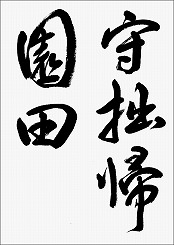 守拙帰
園田